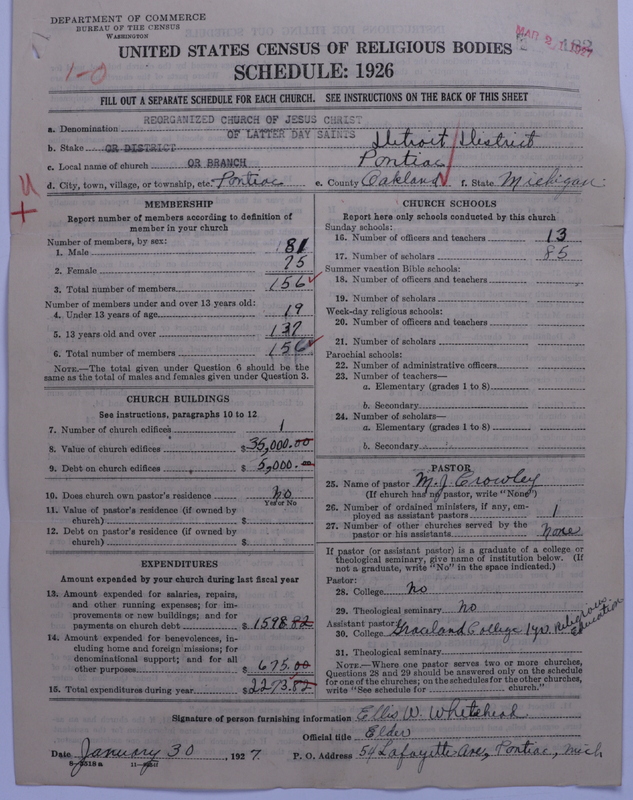 DEPARTMENT OF COMMERCE
BUREAU OF THE CENSUS
WASHINGTON
MAR 2 1927
UNITED STATES CENSUS OF RELIGIOUS BODIES
SCHEDULE: 1926
1-0
FILL OUT A SEPARATE SCHEDULE FOR EACH CHURCH. SEE INSTRUCTIONS ON THE BACK OF THIS SHEET
a. Denomination REORGANIZED CHURCH OF JESUS CHRIST
OF LATTER DAY SAINTS
b. Stake OR DISTRICT Detroit District
c. Local name of church OR BRANCH Pontiac
d. City, town, village, or township, etc. Pontiac e. County Oakland f. State Michigan
MEMBERSHIP
Report number of members according to definition of
member in your church
Number of members, by sex:
1. Male 81
2. Female 75
3. Total number of members 156
Number of members under and over 13 years old:
4. Under 13 years of age 19
5. 13 years old and over 137
6. Total number of members 156
NOTE.—The total given under Question 6 should be
same as the total of males and females given under Question 3.
CHURCH BUILDINGS
See instructions, paragraphs 10 to 12
7. Number of church edifices 1
8. Value of church edifices $35,000.00
9. Debt on church edifices $5,000.00
10. Does church own pastor's residence no
Yes or No
11. Value of pastor's residence (if owned by
church) $
12. Debt on pastor's residence (if owned by
church) $
EXPENDITURES
Amount expended by your church during last fiscal year
13. Amount expended for salaries, repairs,
and other running expenses; for im-
provements or new buildings; and for
payments on church debt $1598.82
14. Amount expended for benevolences, in-
cluding home and foreign missions; for
denominational support; and for all
other purposes $675.00
15. Total expenditures during year $2273.82
CHURCH SCHOOLS
Report here only schools conducted by this church
Sunday schools:
16. Number of officers and teachers 13
17. Number of scholars 85
Summer vacation Bible schools:
18. Number of officers and teachers
19. Number of scholars
Week-day religious schools:
20. Number of officers and teachers
21. Number of scholars
Parochial schools:
22. Number of administrative officers
23. Number of teachers—
a. Elementary (grades 1 to 8)
b. Secondary
24. Number of scholars—
a. Elementary (grades 1 to 8)
b. Secondary
PASTOR
25. Name of pastor M. J. Crowley
(If church has no pastor, write "None")
26. Number of ordained ministers, if any, em-
ployed as assistant pastors 1
27. Number of other churches served by the
pastor or his assistants None
If pastor (or assistant pastor) is a graduate of a college or
theological seminary, give name of institution below. (If
not a graduate, write "No" in the space indicated.)
Pastor:
28. College No
29. Theological seminary No
Assistant pastor:
30. College Graceland College 1 yr. Religious Education
31. Theological seminary
NOTE.—Where one pastor serves two or more churches,
Questions 28 and 29 should be answered only on the schedule
for one of the churches; on the schedules for the other churches,
write "See schedule for church."
Signature of person furnishing information Ellis W. Whitehead
Official title Elder
Date January 30, 1927. P. O. Address 54 Lafayette Ave, Pontiac, Mich